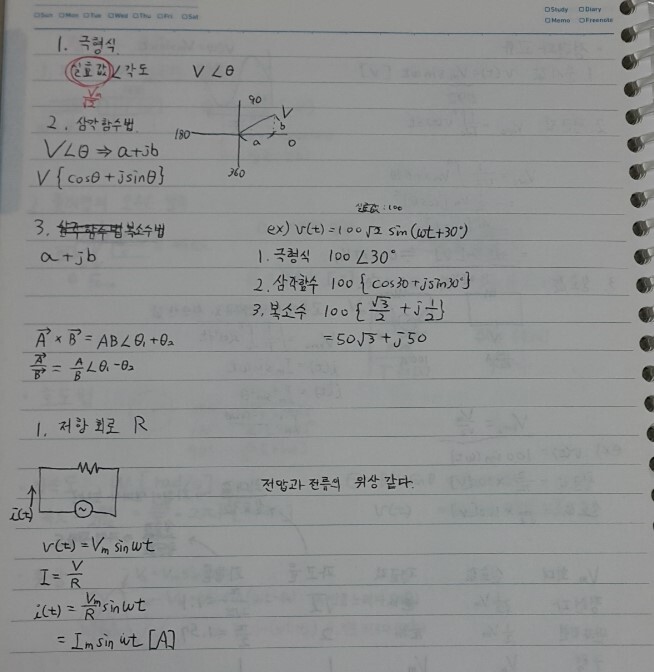 □Sun □Mon □Tue □Wed □Thu □Fri □Sat
□Study □Diary
□Memo □Freenote
1. 극형식
실효값∠각도 V∠θ
Vm/√2
90
180
V
a
b
0
360
2. 삼각함수법
V∠θ ⇒ a+jb
V{cosθ+jsinθ}
3. 삼각함수법 복소수법
a+jb
실효값:100
ex) v(t)=100√2 sin(wt+30°)
1. 극형식 100∠30°
2. 삼각함수 100{cos30+jsin30°}
3. 복소수 100{√3/2 + j 1/2}
=50√3+j50
A⃗ × B⃗ = AB∠θ₁+θ₂
A⃗/B⃗ = A/B∠θ₁-θ₂
1. 저항 회로 R
i(t)
전압과 전류의 위상 같다.
v(t)=Vm sin wt
I=V/R
i(t)=Vm/R sin wt
=Im sin wt [A]